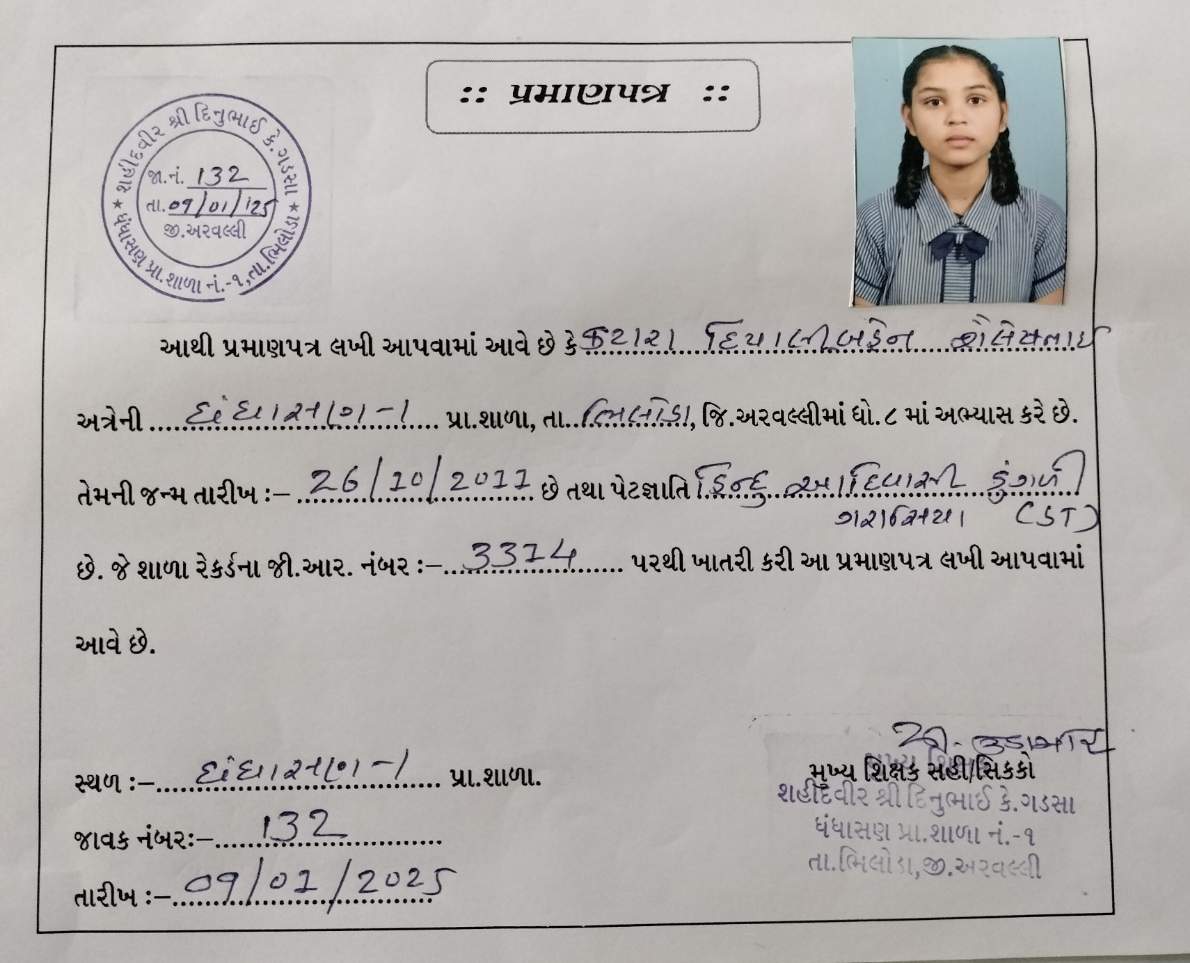 :: પ્રમાણપત્ર ::
શહીદવીર શ્રી દિનુભાઈ કે.ગડસા
જા.નં. 132
તા. 09/01/25
જી.અરવલ્લી
ધંધાસણ પ્રા.શાળા નં.-૧,તા.ભિલોડા
આથી પ્રમાણપત્ર લખી આપવામાં આવે છે કે કટારા દિપાલીબહેન
અત્રેની ધંધાસણ-1 પ્રા.શાળા, તા. ભિલોડા, જિ.અરવલ્લીમાં ધો.૮ માં અભ્યાસ કરે છે.
તેમની જન્મ તારીખ :- 26/10/2011 છે તથા પેટાજ્ઞાતિ હિન્દુ આદિવાસી ડુંગરી
ગરાસિયા (ST)
છે. જે શાળા રેકર્ડના જી.આર. નંબર :- 3314 પરથી ખાતરી કરી આ પ્રમાણપત્ર લખી આપવામાં
આવે છે.
સ્થળ :- ધંધાસણ-1 પ્રા.શાળા.
જાવક નંબર:- 132
તારીખ :- 09/01/2025
મુખ્ય શિક્ષક સહી/સિક્કો
શહીદવીર શ્રી દિનુભાઈ કે.ગડસા
ધંધાસણ પ્રા.શાળા નં.-૧
તા.ભિલોડા,જી.અરવલ્લી